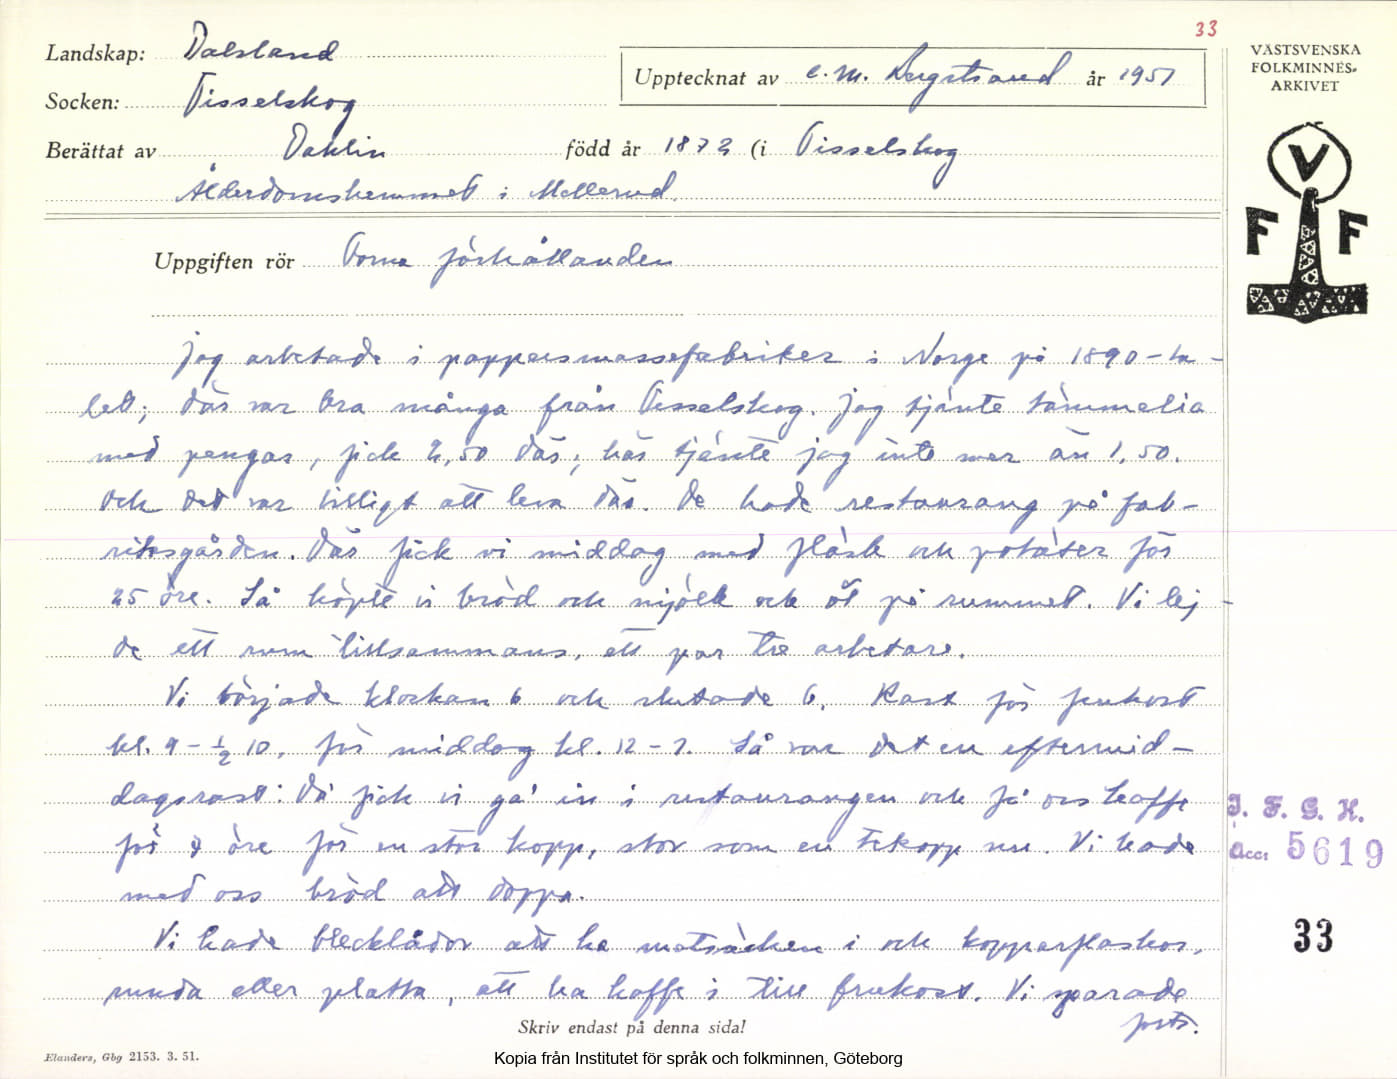 33
Landskap: Dalsland
Upptecknat av C. M. Bergstrand år 1951
Socken: Tisselskog
Berättat av Dahlin född år 1872 (i Tisselskog
Ålderdomshemmet i Mellerud.
VÄSTSVENSKA
FOLKMINNES-
ARKIVET
V
F F
Uppgiften rör Forna förhållanden
Jag arbetade i pappersmassefabriker i Norge på 1890-ta-
let; där var bra många från Tisselskog. Jag tjänte tämmelia
med pengar, fick 2,50 där, här tjänte jag inte mer än 1,50.
Och det var billigt att leva där. De hade restaurang på fab-
riksgården. Där fick vi middag med fläsk och potäter för
25 öre. Så köpte vi bröd och mjölk och öl på rummet. Vi lej-
de ett rum tillsammans, ett par tre arbetare.
Vi började klockan 6 och slutade 6. Rast för frukost
kl. 9 - ½ 10, för middag kl. 12 - 1. Så var det en eftermid-
dagsrast: Då fick vi gå in i restaurangen och få oss kaffe
för öre för en stor kopp, stor som en tekopp nu. Vi hade
med oss bröd att doppa.
Vi hade blecklådor att ha matsäcken i och kopparflaskor,
runda eller platta, att ha kaffe i till frukost. Vi sparade
forts.
I. F. G. H.
Acc: 5619
33
Skriv endast på denna sida!
Elanders, Gbg 2153. 3. 51.
Kopia från Institutet för språk och folkminnen, Göteborg